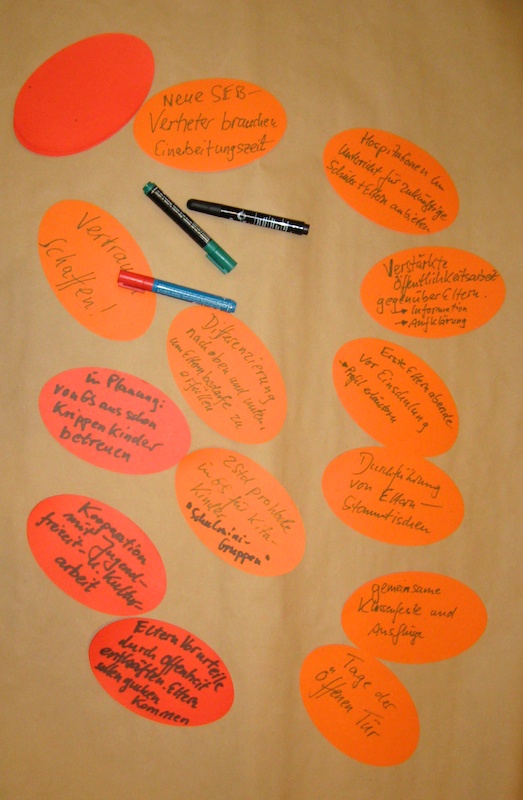 Neue SEB-
Vertreter brauchen
Einarbeitungszeit
Hospitationen im
Unterricht für zukünftige
Schüler + Eltern anbieten
Vertrauen
schaffen!
Verstärkte
Öffentlichkeitsarbeit
gegenüber Eltern.
→ Information
→ Aufklärung
Differenzierung
nach oben und unten,
um Elternbedarfe zu
erfüllen
Erste Elternabende
vor Einschulung
→ Profil erläutern
in Planung:
von GS aus schon
Krippenkinder
betreuen
2 Std pro Woche
in GS für Kita-
Kinder
"Schulmini-
Gruppen"
Durchführung
von Eltern-
Stammtischen
Kooperation
mit Jugend-
freizeit- u. Kultur-
arbeit
gemeinsame
Klassenfeste und
Ausflüge
Eltern Vorurteile
durch Offenheit
entkräften. Eltern
sollen gucken
kommen
Tage der
offenen Tür